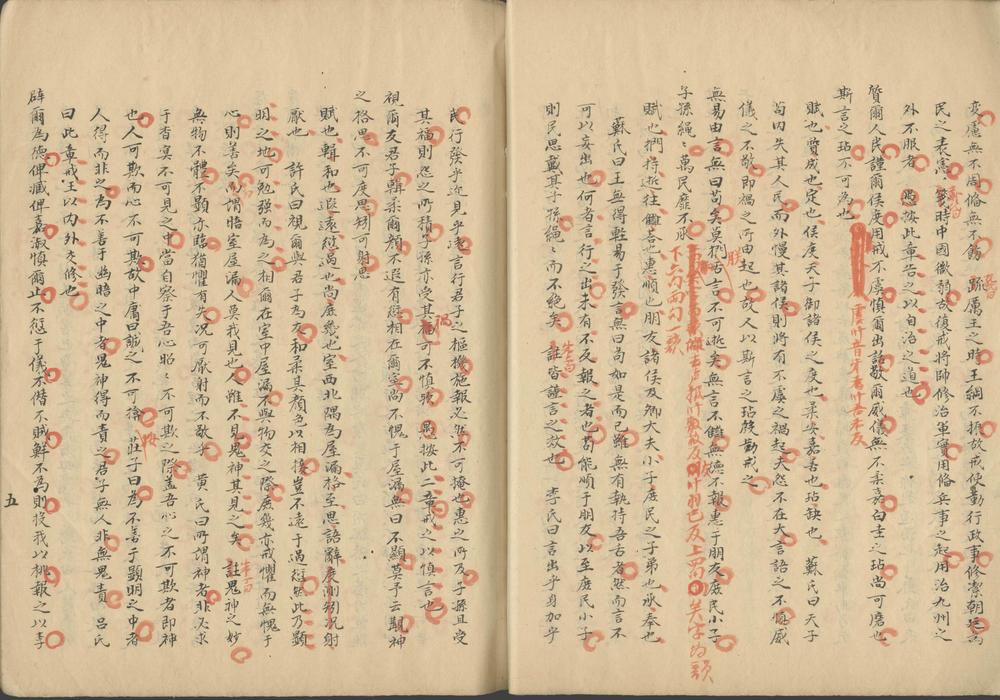 變慮無不周脩無不飭 疏厲王之時王綱不振故戒使勤行政事修潔朝廷為
民之表憲 時中國微弱故復戒將帥修治軍實用脩兵事之起用治九州之
外不服者 愚按此章告之以自治之道也
質爾人民謹爾侯度用戒不虞慎爾出話敬爾威儀無不柔嘉白圭之玷尚可磨也
斯言之玷不可為也
賦也質成也定也侯度天子御諸侯之度也柔安嘉善也玷缺也 蘇氏曰天子
苟内失其人民而外慢其諸侯則將有不虞之禍起夫怨不在大言語之不慎威
儀之不敬即禍之所由起也故人以斯言之玷勤戒之
無易由言無曰苟矣莫捫朕舌言不可逝矣無言不讎無德不報惠于朋友庶民小子
子孫繩〻萬民靡不承
下六句两句一韻
賦也捫持逝往讎荅也惠順也朋友諸侯及卿大夫小子庶民之子弟也承奉也
蘇氏曰王無得輕易于發言無曰苟如是而已雖無有執持吾舌者然而言不
可以妄出也何者言行之出未有不反報之者也苟能順于朋友以至庶民小子
則民思戴其子孫繩〻而不絶矣 註皆謹言之效也 李氏曰言出乎身加乎
民行發乎迩見乎遠言行君子之樞機施報必然不可掩也惠之所及子孫且受
其福則怨之所積子孫亦受其禍可不慎歟 愚按此二章戒之以慎言也
視爾友君子輯柔爾顏不遐有愆相在爾室尚不愧于屋漏無曰不顯莫予云覯神
之格思不可度思矧可射思
賦也輯和也遐遠愆過也尚庶幾也室西北隅為屋漏格至思語辭度測矧况射
厭也 許氏曰視爾與君子為友和柔其顏色以相接豈不遠于過愆然此乃顯
明之地可勉强而為之相爾在室中屋漏不與物交之際庶幾亦戒懼而無愧于
心則善矣而謂暗室屋漏人莫我見也人雖不見鬼神其見之矣 註鬼神之妙
無物不體不顯亦臨猶懼有失况可厭射而不敬乎 黄氏曰所謂神者非必求
于杳冥不可見之中當自察于吾心昭〻不可欺之際蓋吾心之不可欺者即神
也人可欺而心不可欺故中庸曰誠之不可掩 莊子曰為不善于顯明之中者
人得而非之為不善于幽暗之中者鬼神得而責之君子無人非無鬼責 吕氏
曰此章戒王以内外交修也
辟爾為德俾臧俾嘉淑慎爾止不愆于儀不僭不賊鮮不為則投我以桃報之以李
五